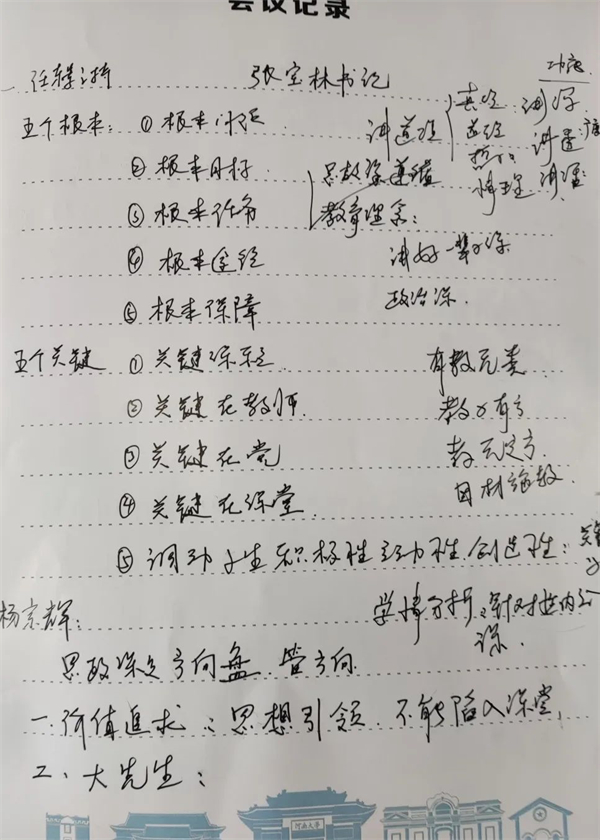 会议记录
一 主持 张宝林书记
五个根本: ① 根本
② 根本目标
③ 根本任务
④ 根本途径
⑤ 根本保障
讲道理
道经
讲理
讲深
讲透
讲
思政课
教育理念:
讲好一
政治课
五个关键 ① 关键
② 关键在教师
③ 关键在党
④ 关键在课堂
⑤ 调动学生积极性主动性创造性:
关键
有教无类
教亦有方
教无定方
因材施教
杨宗辉:
学情分析、针对
课
思政课方向盘 管方向
一、价值追求:思想引领 不能陷入课堂
二、大先生:
河南大学